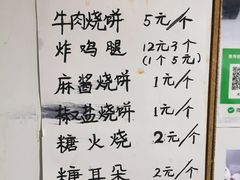 牛肉烧饼 5元/个
炸鸡腿 12元3个
(1个5元)
麻酱烧饼 1元/个
椒盐烧饼 1元/个
糖火烧 2元/个
糖耳朵 2元/个